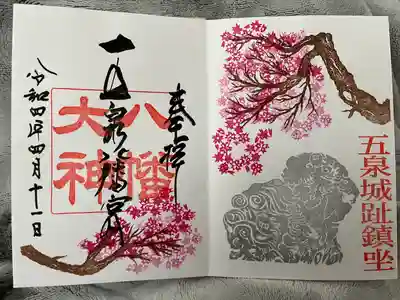 五泉城趾鎮坐
奉拝
八幡
大神
五泉八幡宮
令和四年四月十一日